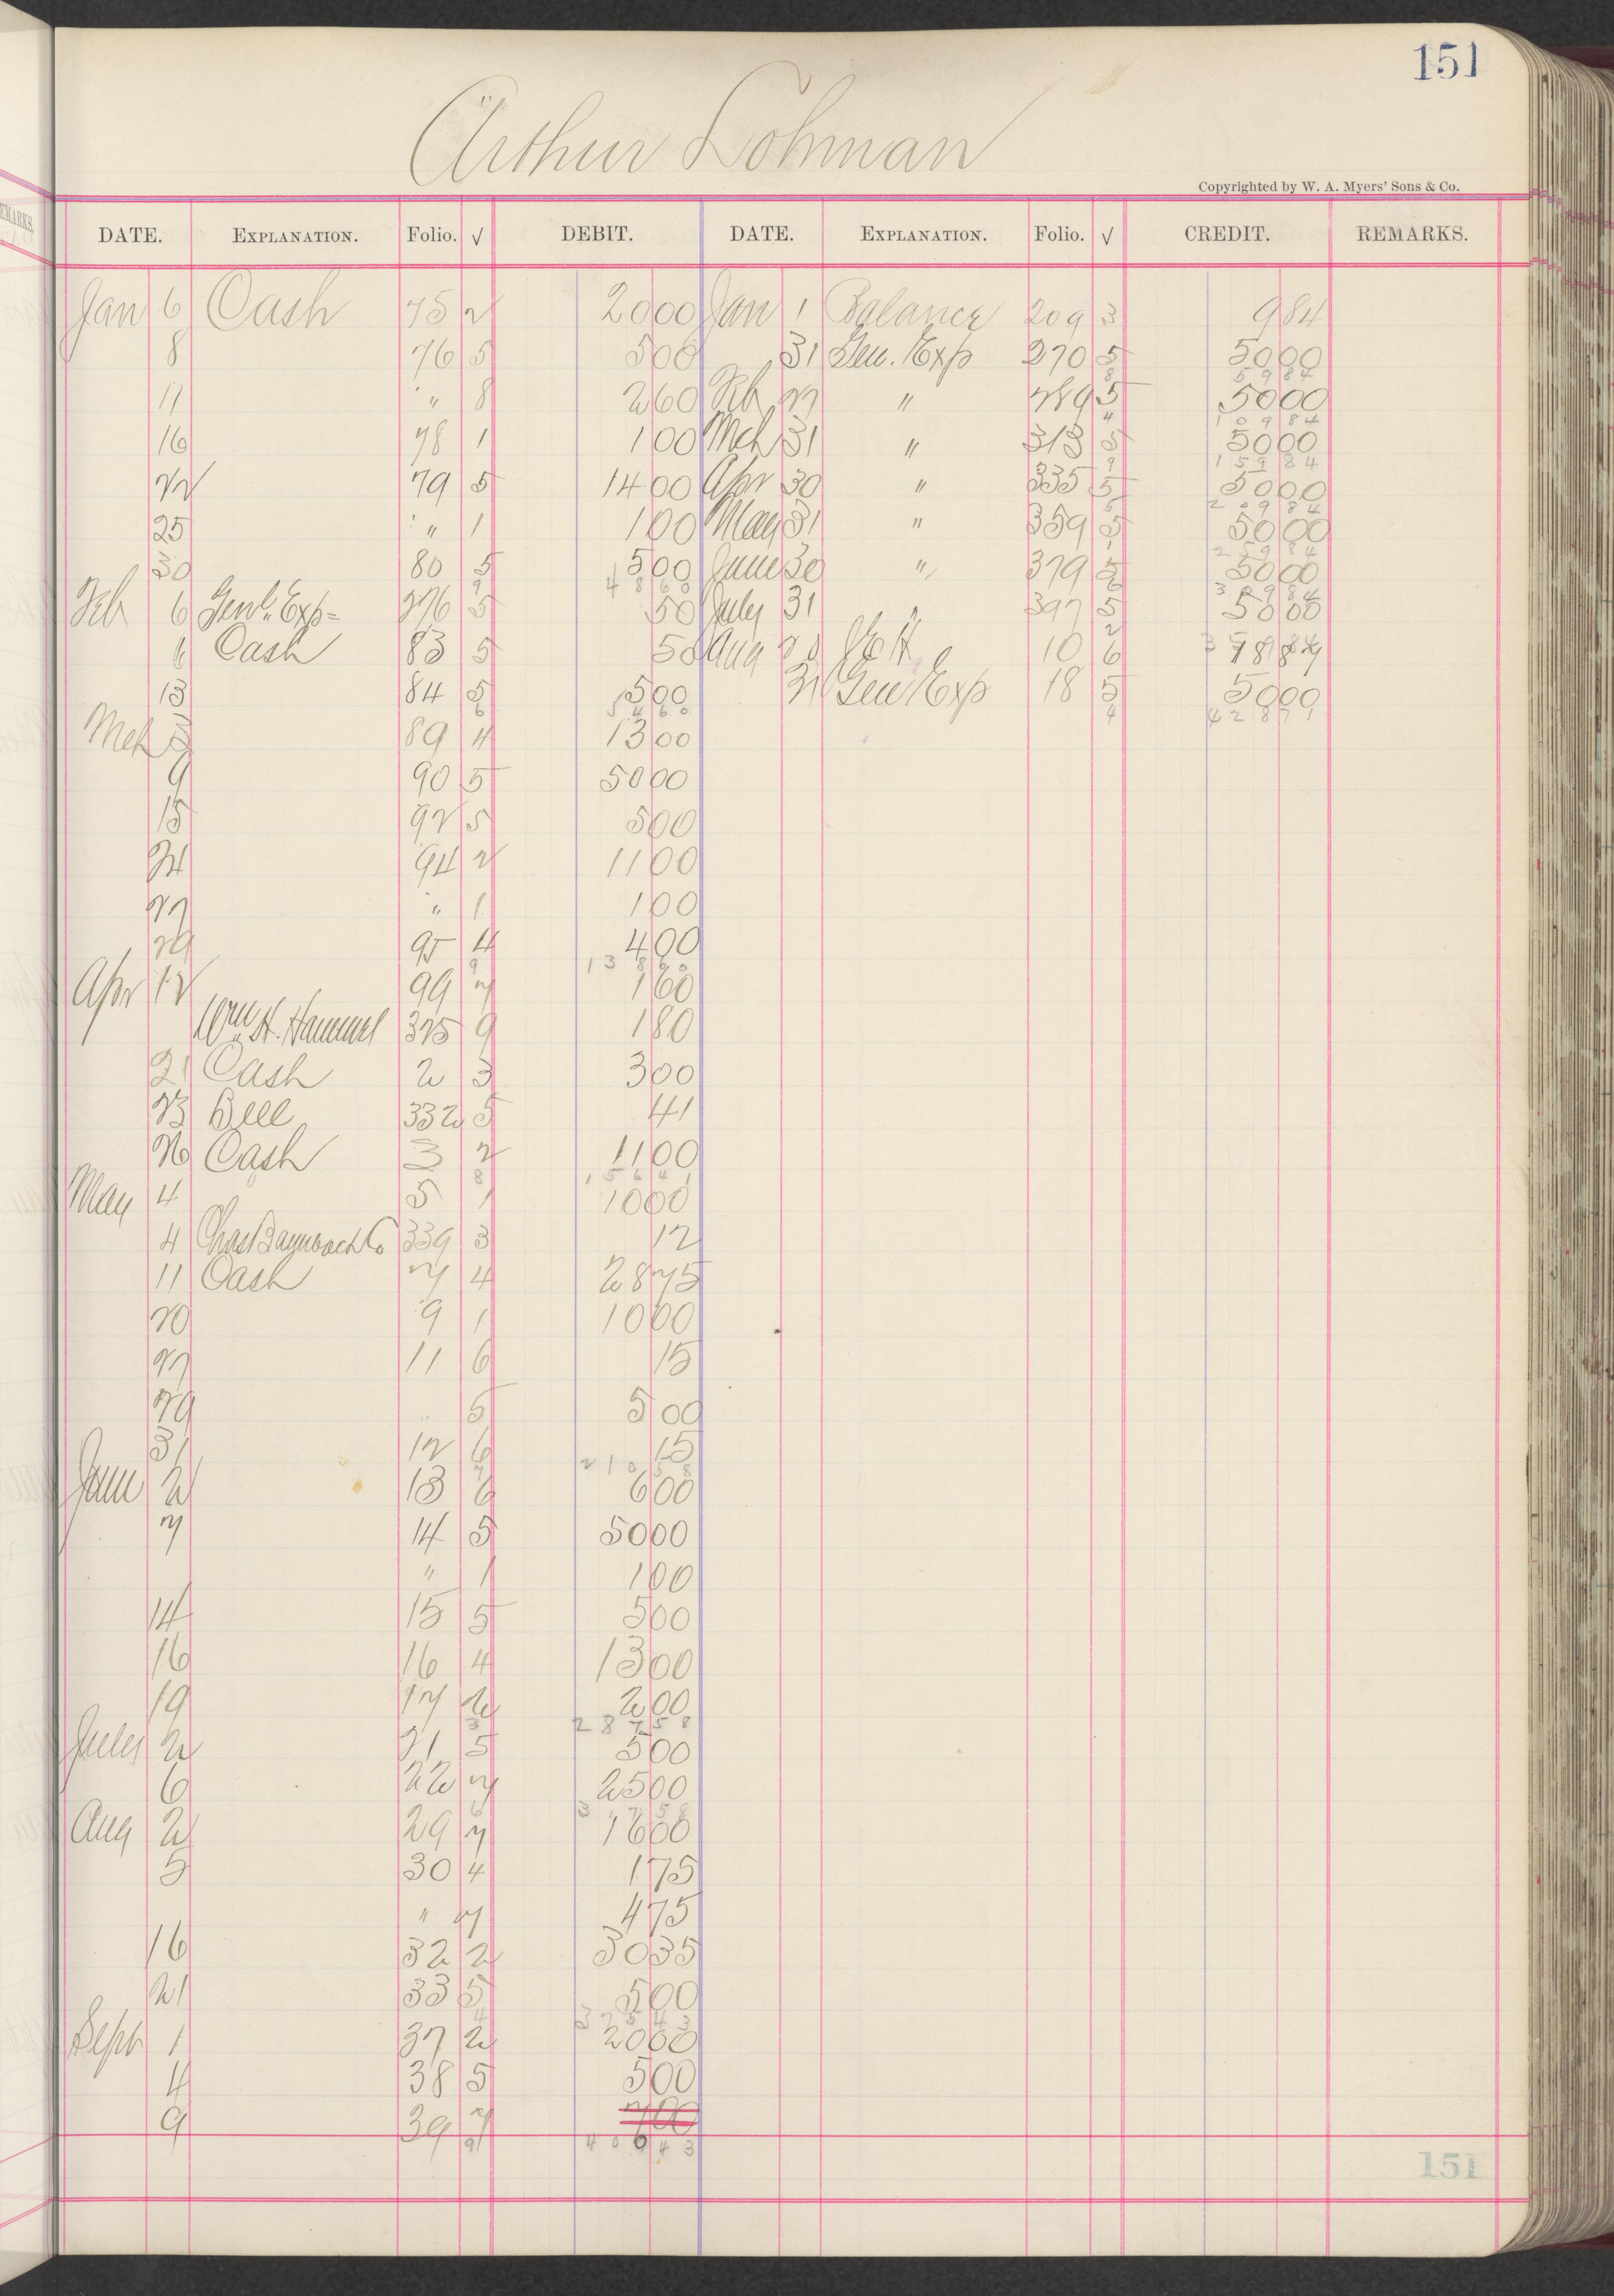 151
Arthur Lohman
Copyrighted by W. A. Myers' Sons & Co.
DATE. EXPLANATION. Folio. √ DEBIT. DATE. EXPLANATION. Folio. √ CREDIT. REMARKS.
Jan 6 Cash 75 2 2000 Jan 1 Balance 209 3 984
8 76 5 500 31 Gen. Exp 270 5 5000
5984
11 " 8 260 Feb 27 " 289 5 5000
10984
16 78 1 100 Mch 31 " 313 5 5000
15984
22 79 5 1400 Apr 30 " 335 5 5000
20984
25 " 1 100 May 31 " 359 5 5000
25984
30 80 5 500 June 30 " 379 5 5000
4860 30984
Feb 6 Genl. Exp- 276 5 50 July 31 " 397 5 5000
6 Cash 83 5 50 Aug 10 6
13 84 5 500 31 Gen Exp 18 5 5000
5460
Mch 3 89 4 1300
9 90 5 5000
15 92 5 500
24 94 2 1100
27 " 1 100
29 95 4 400
13860
Apr 12 99 7 160
Wm H. Hammel 325 9 180
21 Cash 2 3 300
23 Bell 332 5 41
26 Cash 3 2 1100
15641
May 4 5 1 1000
4 Chas Baumbach Co 339 3 12
11 Cash 7 4 2875
20 9 1 1000
27 11 6 15
29 " 5 500
31 12 6 15
21058
June 2 13 6 600
7 14 5 5000
" 1 100
14 15 5 500
16 16 4 1300
19 17 2 200
28758
July 2 21 5 500
6 22 7 2500
31758
Aug 2 29 7 1600
5 30 4 175
" 7 475
16 32 2 3035
21 33 5 500
37543
Sept 1 37 2 2000
4 38 5 500
9 39 7 700
40643
151